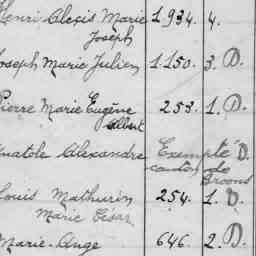 Henri Alexis Marie 1.934. 4.
Joseph
Joseph Marie Julien 1.150. 3. D.
Pierre Marie Eugène 253. 1. D.
Albert
Anatole Alexandre Exempté D.
canton de
Broons
Louis Mathurin 254. 1. D.
Marie César
Marie-Ange 646. 2. D.